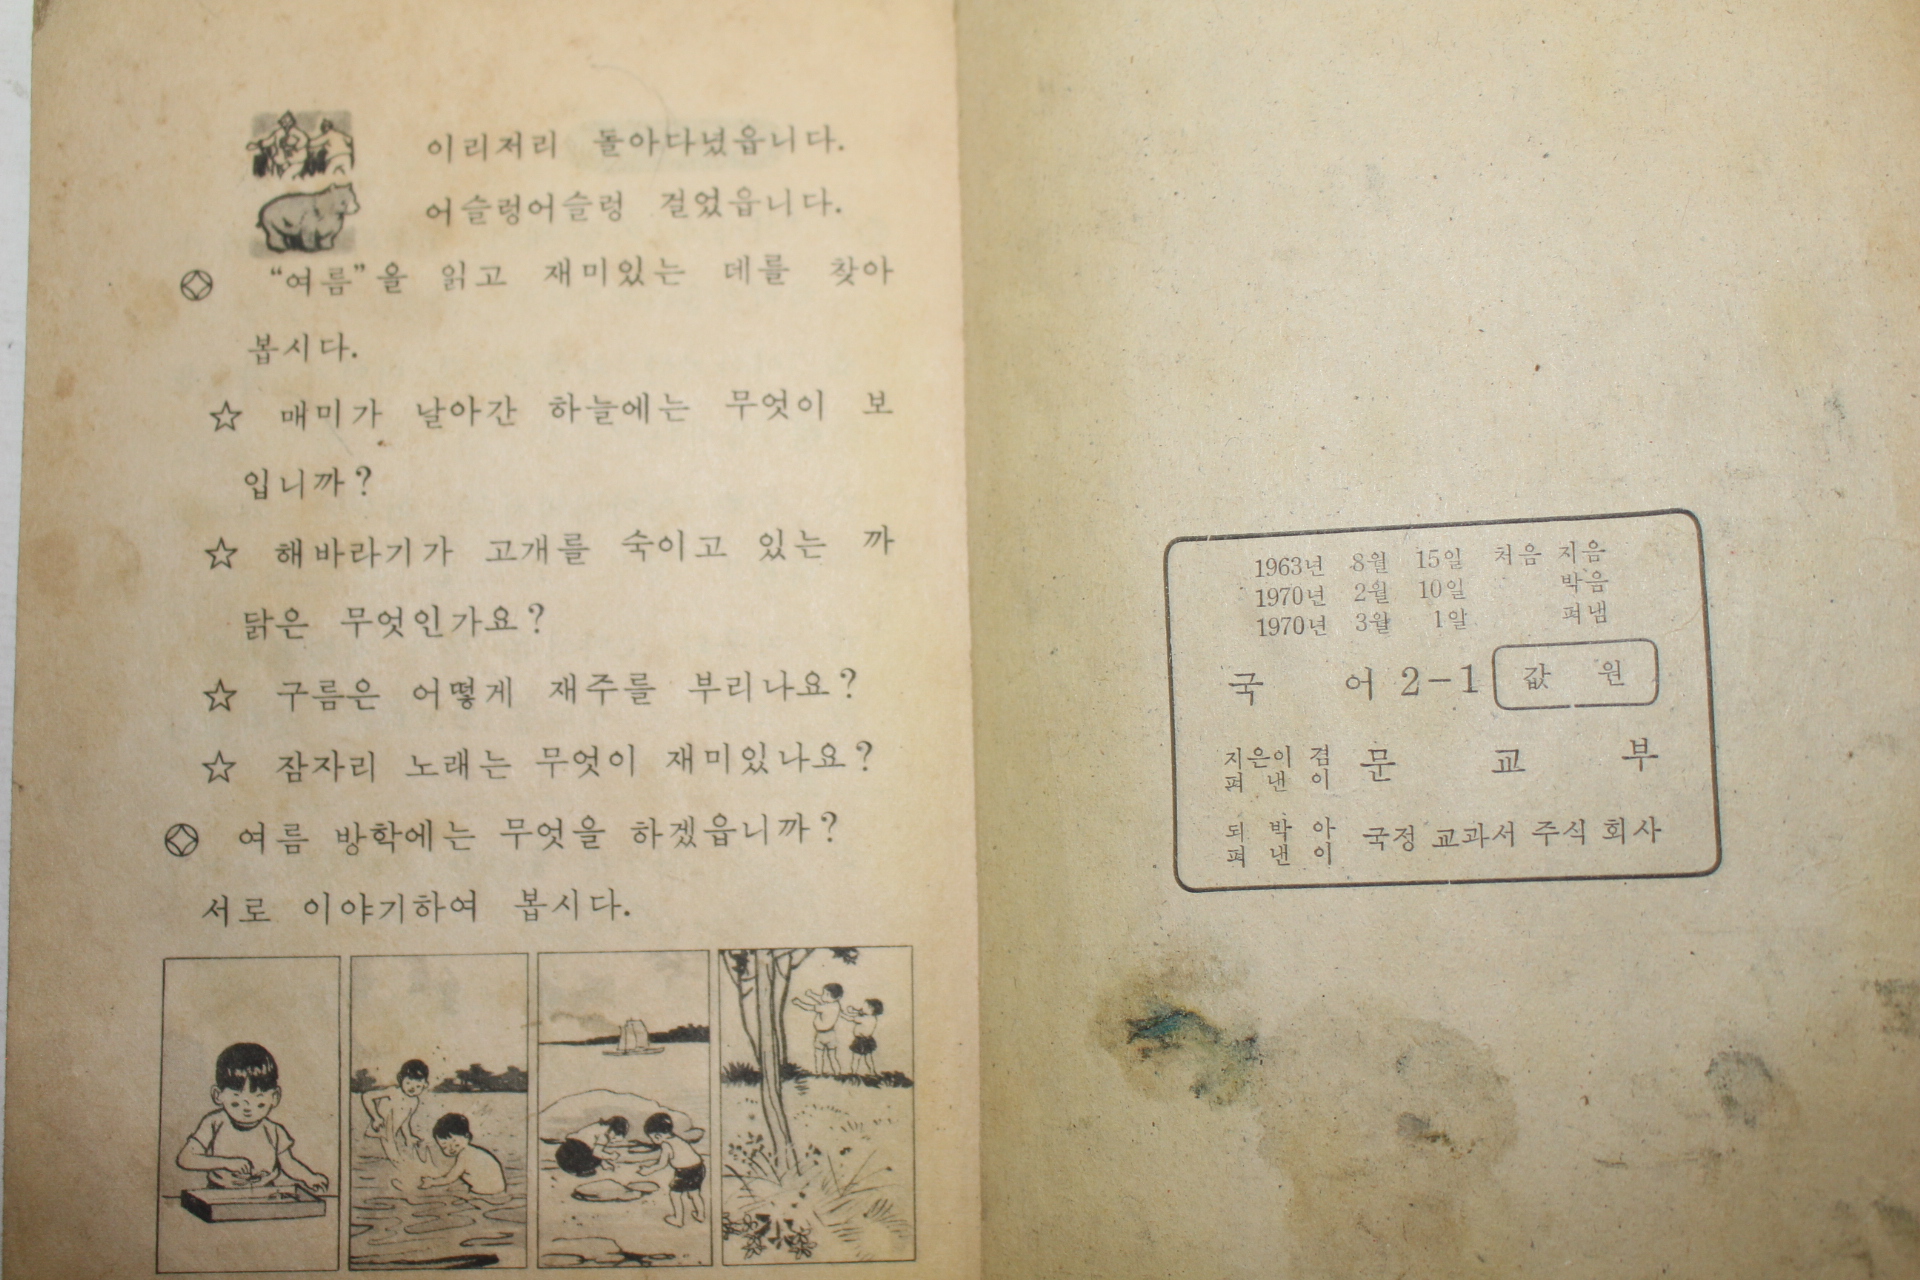 이리저리 돌아다녔읍니다.
어슬렁어슬렁 걸었읍니다.
“여름”을 읽고 재미있는 데를 찾아
봅시다.
☆ 매미가 날아간 하늘에는 무엇이 보
입니까?
☆ 해바라기가 고개를 숙이고 있는 까
닭은 무엇인가요?
☆ 구름은 어떻게 재주를 부리나요?
☆ 잠자리 노래는 무엇이 재미있나요?
여름 방학에는 무엇을 하겠읍니까?
서로 이야기하여 봅시다.
1963년 8월 15일 처음 지음
1970년 2월 10일 박음
1970년 3월 1일 펴냄
국 어 2-1 값 원
지은이 겸
펴 낸 이
문 교 부
되 박 아
펴 낸 이
국정 교과서 주식 회사